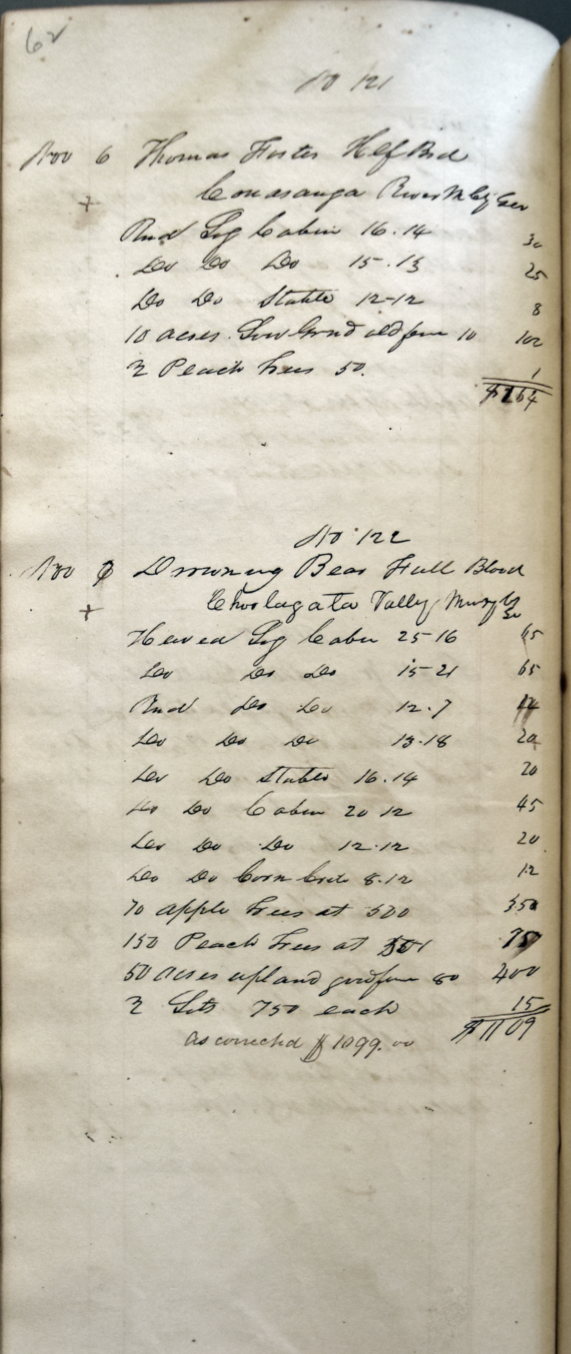 62
No 121
Nov 6 Thomas Foster Hlf Brd
+ Conasauga River
Rnd Log Cabin 16.14 30
Do Do Do 15.13 25
Do Do Stable 12-12 8
10 acres Low Grnd 10 102
2 Peach trees 50. 1
$164
No 122
Nov Drowning Bear Full Blood
+ Valley
Hewed Log Cabin 25-16 65
Do Do Do 15-21 65
Rnd Do Do 12.7
Do Do Do 13.18 20
Do Do Stable 16.14 20
Do Do Cabin 20 12 45
Do Do Do 12.12 20
Do Do Corn Crib 8.12 12
70 apple trees at 500 350
150 Peach trees at 75
50 acres upland 80 400
2 Lots 750 each 15
$1109
as corrected $1099.00